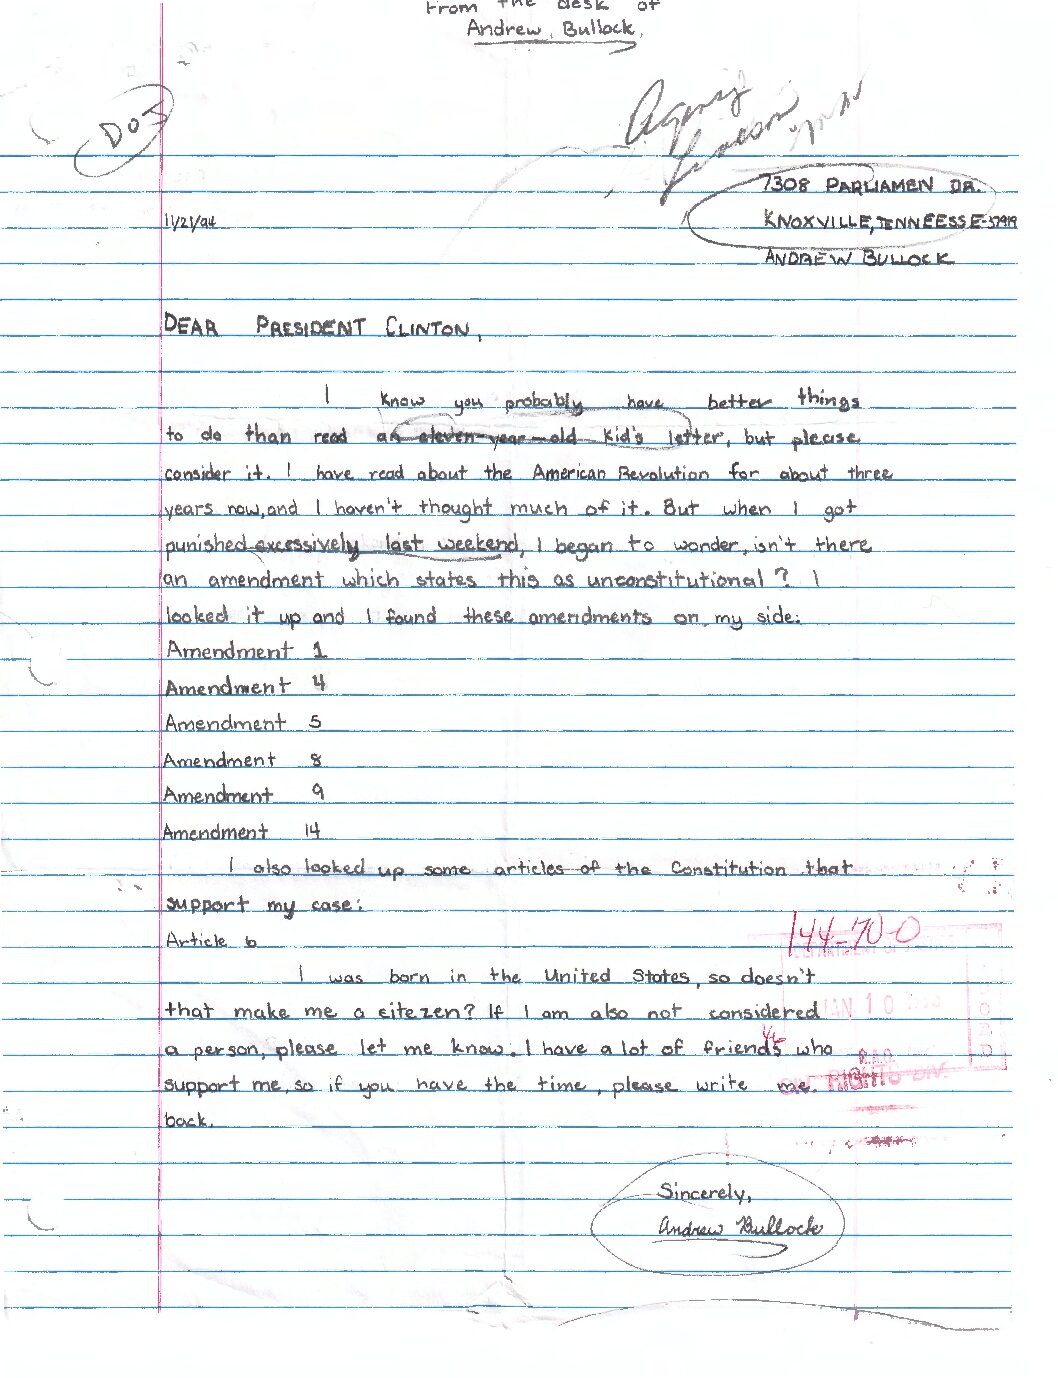 From the desk of
Andrew Bullock,
DOJ
Agency
Liaison
7308 PARLIAMEN DR.
11/21/94
KNOXVILLE, TENNEESSE-37919
ANDREW BULLOCK
DEAR PRESIDENT CLINTON,
I know you probably have better things
to do than read an eleven-year-old kid's letter, but please
consider it. I have read about the American Revolution for about three
years now, and I haven't thought much of it. But when I got
punished excessively last weekend, I began to wonder, isn't there
an amendment which states this as unconstitutional? I
looked it up and I found these amendments on my side:
Amendment 1
Amendment 4
Amendment 5
Amendment 8
Amendment 9
Amendment 14
I also looked up some articles of the Constitution that
support my case:
Article 6
144-70-0
I was born in the United States, so doesn't
that make me a citezen? If I am also not considered
JAN 10
a person, please let me know. I have a lot of friends who
R.A.O.
support me, so if you have the time, please write me
RIGHTS DIV.
back.
Sincerely,
Andrew Bullock